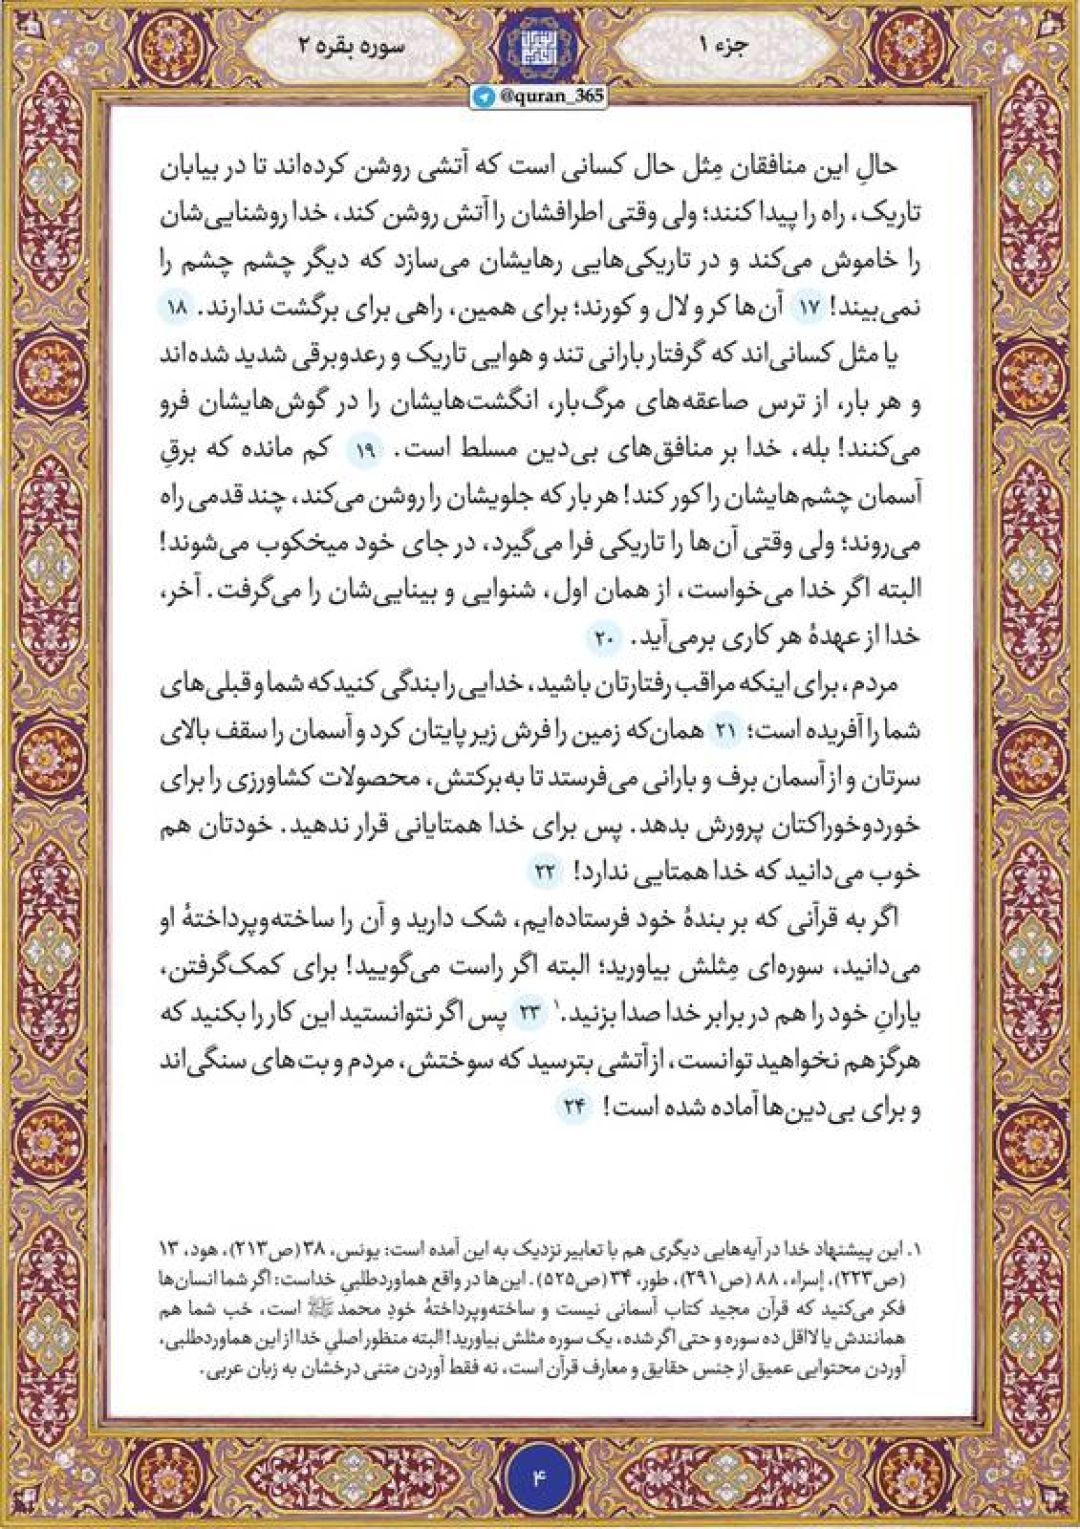 جزء ۱
سوره بقره ۲
@quran_365
حالِ این منافقان مِثل حال کسانی است که آتشی روشن کرده‌اند تا در بیابان
تاریک، راه را پیدا کنند؛ ولی وقتی اطرافشان را آتش روشن کند، خدا روشنایی‌شان
را خاموش می‌کند و در تاریکی‌هایی رهایشان می‌سازد که دیگر چشم چشم را
نمی‌بیند! ۱۷ آن‌ها کر و لال و کورند؛ برای همین، راهی برای برگشت ندارند. ۱۸
یا مثل کسانی‌اند که گرفتار بارانی تند و هوایی تاریک و رعدوبرقی شدید شده‌اند
و هر بار، از ترس صاعقه‌های مرگ‌بار، انگشت‌هایشان را در گوش‌هایشان فرو
می‌کنند! بله، خدا بر منافق‌های بی‌دین مسلط است. ۱۹ کم مانده که برقِ
آسمان چشم‌هایشان را کور کند! هر بار که جلویشان را روشن می‌کند، چند قدمی راه
می‌روند؛ ولی وقتی آن‌ها را تاریکی فرا می‌گیرد، در جای خود میخکوب می‌شوند!
البته اگر خدا می‌خواست، از همان اول، شنوایی و بینایی‌شان را می‌گرفت. آخر،
خدا از عهدهٔ هر کاری برمی‌آید. ۲۰
مردم، برای اینکه مراقب رفتارتان باشید، خدایی را بندگی کنید که شما و قبلی‌های
شما را آفریده است؛ ۲۱ همان‌که زمین را فرش زیر پایتان کرد و آسمان را سقف بالای
سرتان و از آسمان برف و بارانی می‌فرستد تا به‌برکتش، محصولات کشاورزی را برای
خوردوخوراکتان پرورش بدهد. پس برای خدا همتایانی قرار ندهید. خودتان هم
خوب می‌دانید که خدا همتایی ندارد! ۲۲
اگر به قرآنی که بر بندهٔ خود فرستاده‌ایم، شک دارید و آن را ساخته‌وپرداختهٔ او
می‌دانید، سوره‌ای مِثلش بیاورید؛ البته اگر راست می‌گویید! برای کمک‌گرفتن،
یارانِ خود را هم در برابر خدا صدا بزنید.۱ ۲۳ پس اگر نتوانستید این کار را بکنید که
هرگز هم نخواهید توانست، از آتشی بترسید که سوختش، مردم و بت‌های سنگی‌اند
و برای بی‌دین‌ها آماده شده است! ۲۴
۱. این پیشنهاد خدا در آیه‌هایی دیگری هم با تعابیر نزدیک به این آمده است: یونس، ۳۸ (ص۲۱۳)، هود، ۱۳
(ص۲۲۳)، إسراء، ۸۸ (ص۲۹۱)، طور، ۳۴ (ص۵۲۵). این‌ها در واقع هماوردطلبیِ خداست: اگر شما انسان‌ها
فکر می‌کنید که قرآن مجید کتاب آسمانی نیست و ساخته‌وپرداختهٔ خودِ محمدﷺ است، خب شما هم
همانندش یا لااقل ده سوره و حتی اگر شده، یک سوره مثلش بیاورید! البته منظور اصلیِ خدا از این هماوردطلبی،
آوردن محتوایی عمیق از جنس حقایق و معارف قرآن است، نه فقط آوردن متنی درخشان به زبان عربی.
۴